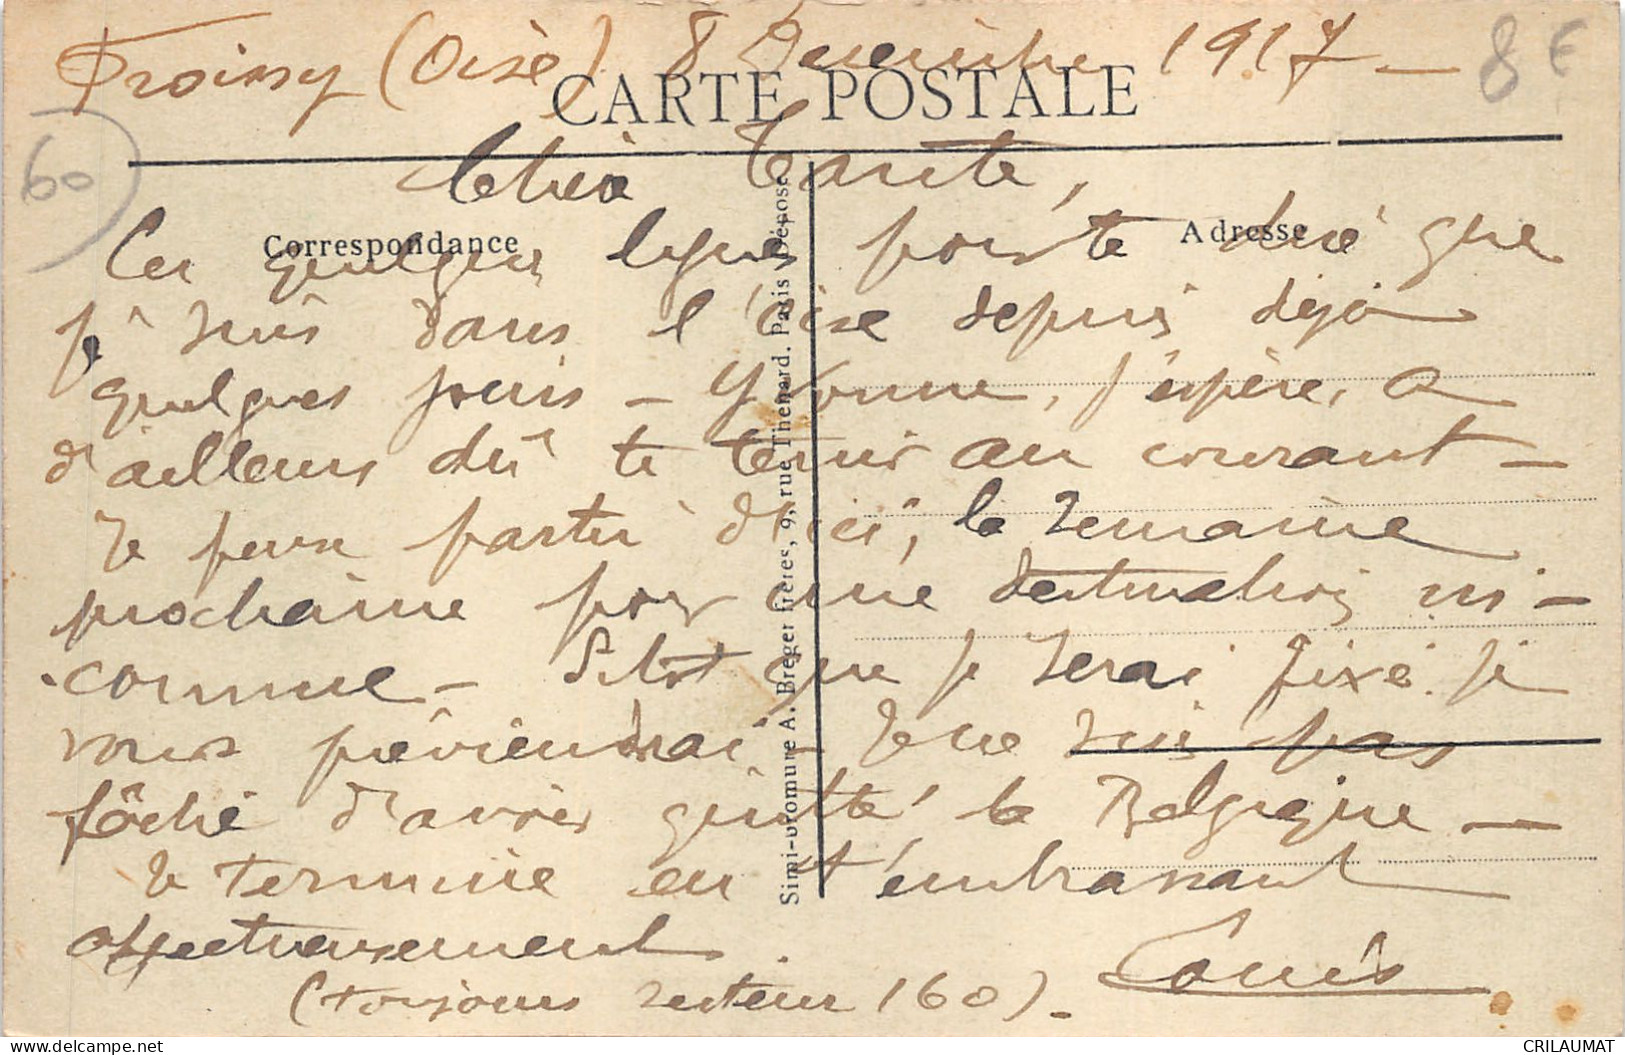 Froissy (Oise) 8 Décembre 1917 —
8 €
CARTE POSTALE
60
Chère Tante,
Correspondance
Adresse
Ces quelques lignes pour te dire que
je suis dans l'Oise depuis déjà
quelques jours — Yvonne, j'espère, a
d'ailleurs dû te tenir au courant —
Je pense partir d'ici, la semaine
prochaine pour une destination in-
connue — Sitôt que je serai fixé je
vous préviendrai — Je ne suis pas
fâché d'avoir quitté la Belgique —
Je termine en t'embrassant
affectueusement.
Louis
(toujours secteur 160) —
Simi-bromure A. Breger frères, 9, rue Thénard. Paris Déposé
CRILAUMAT